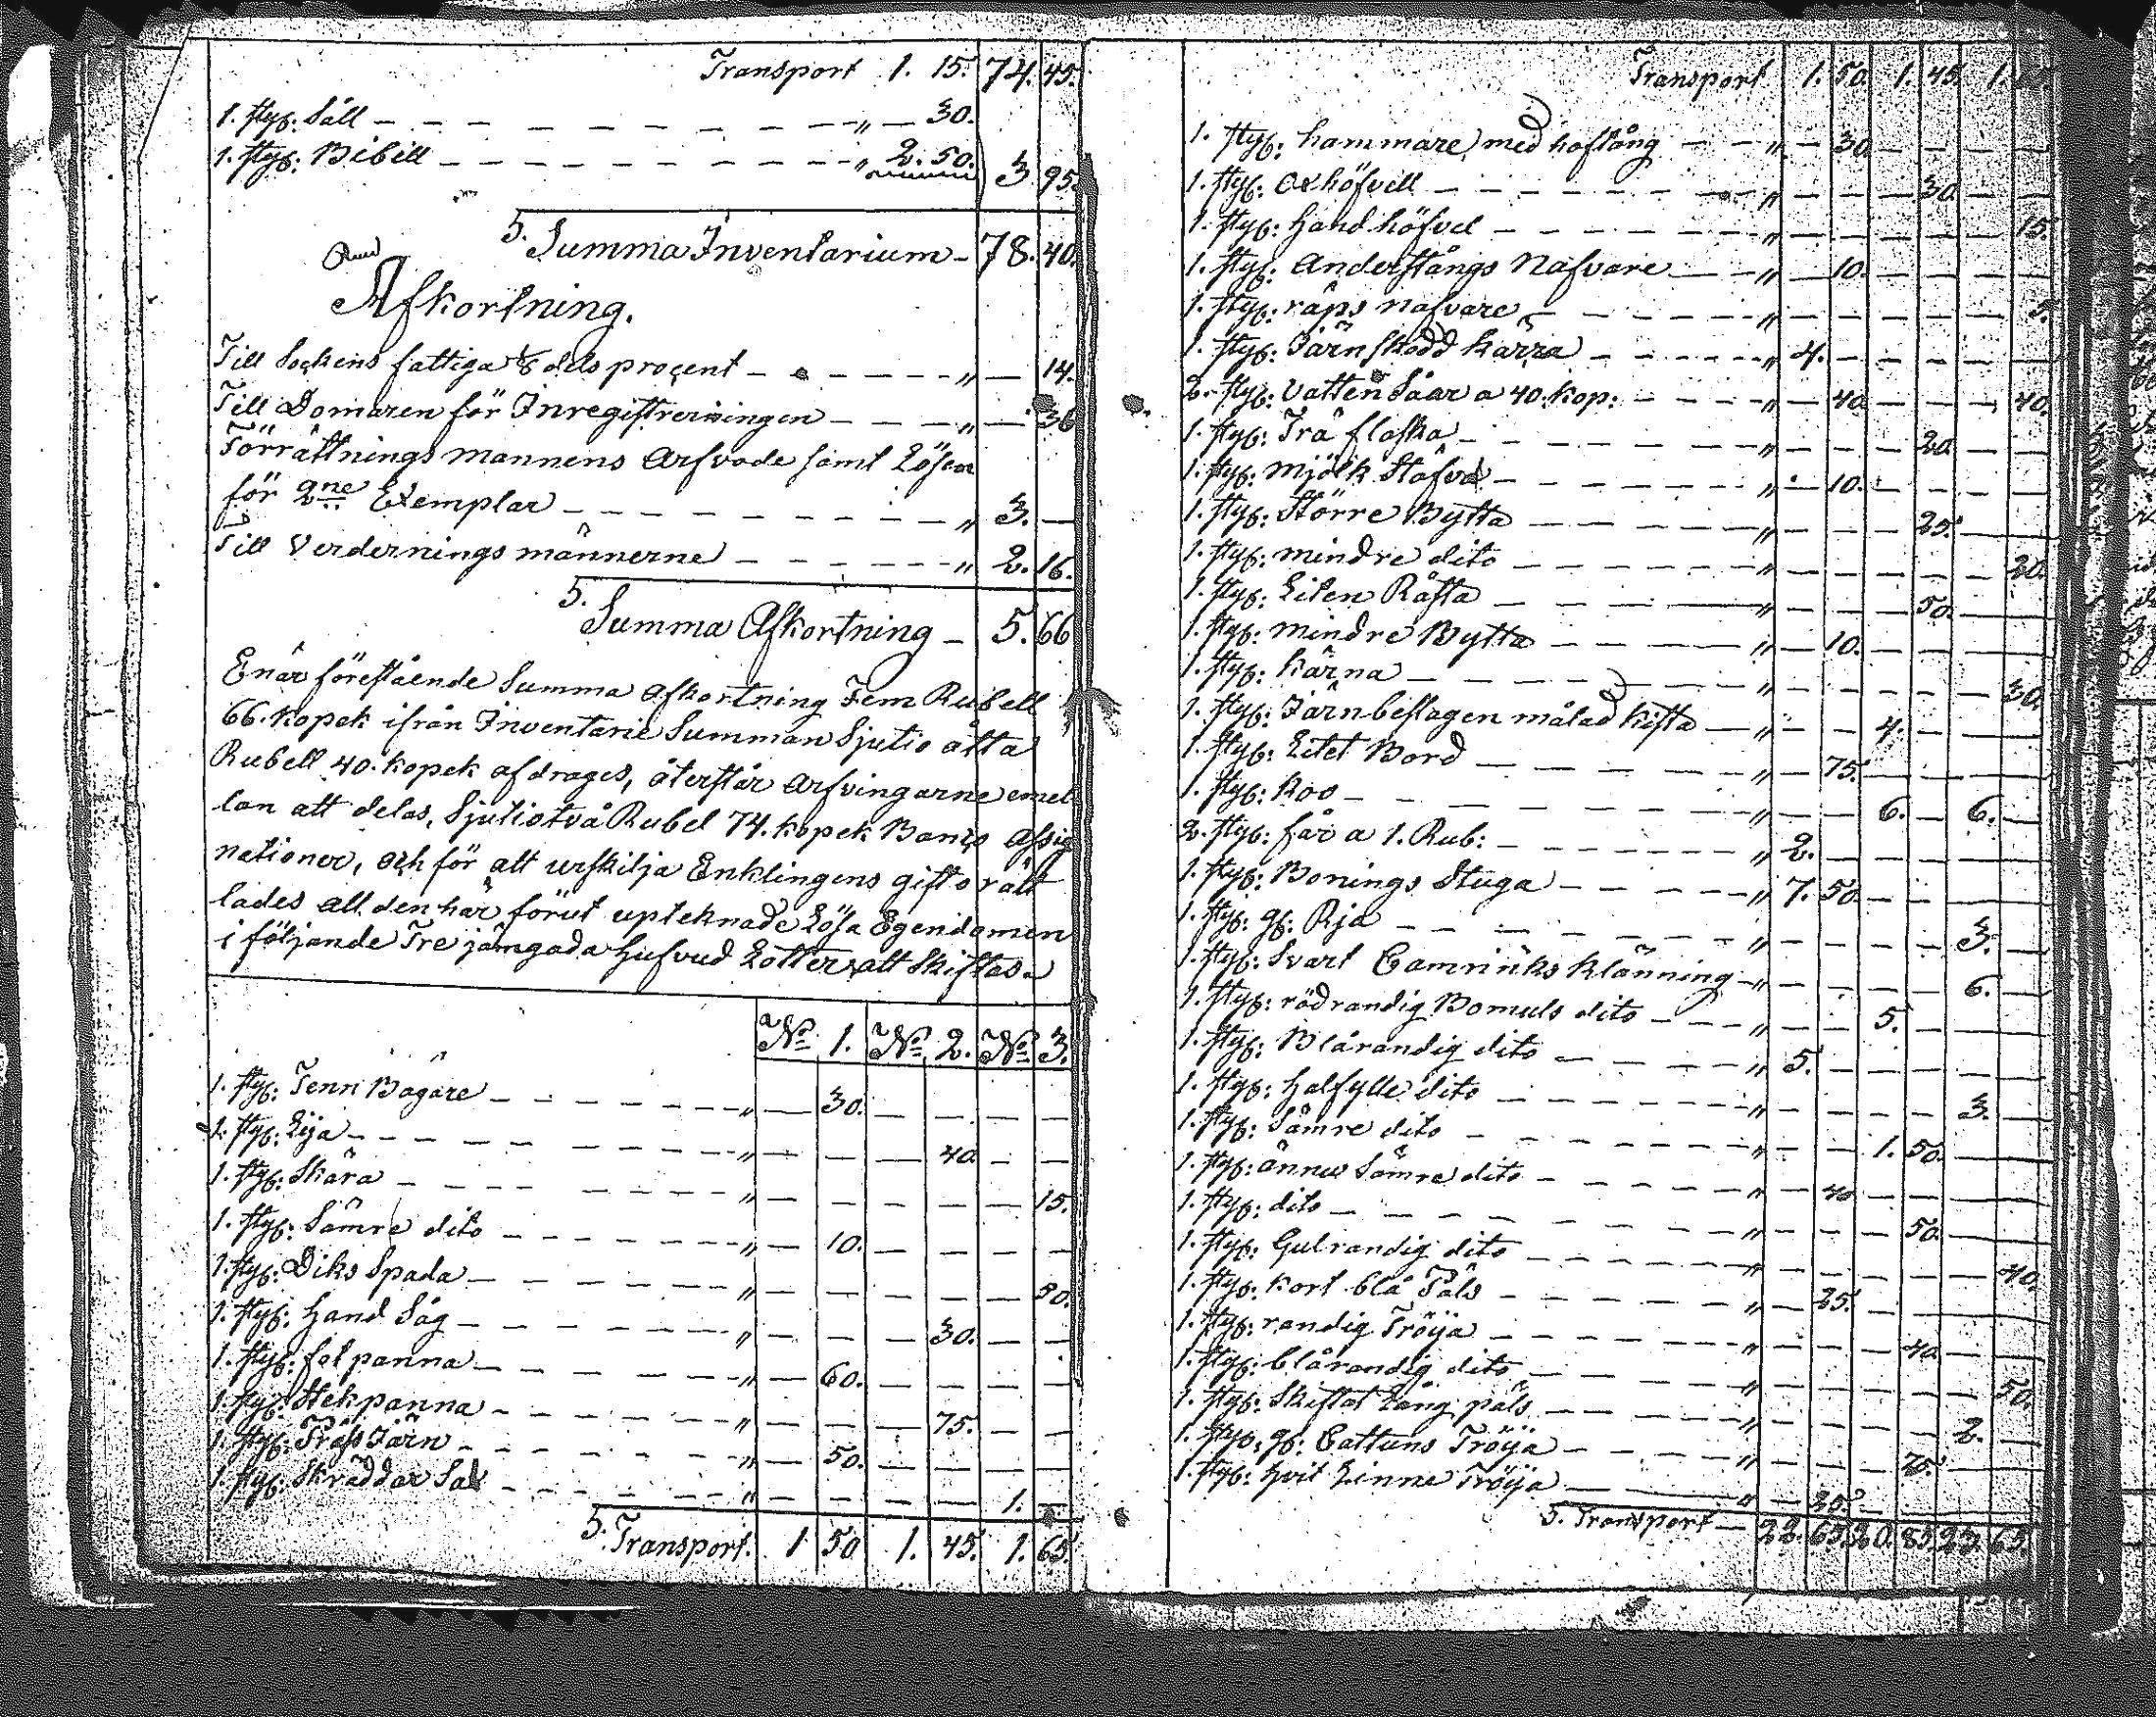 Transport 1. 15. 74. 45.
1. styf: Såll — — — „ — 30.
1. styf: Bibill — — — „ 2. 50. 3 95.
S. Summa Inventarium — 78. 40.
Afkortning.
Till Sockens fattiga 1/8 dels proçent — — — „ — 14.
Till Domaren för Inregistreriningen — — — „ — 36
Förrättnings mannens Arfvode samt Lösen
för 2ne Exemplar — — — „ 3. —
Till Verdernings männerne — — — „ 2. 16.
S. Summa Afkortning — 5. 66
Enär förestående Summa afkortning Fem Rubell
66. kopek ifrån Inventarie Summan Sjutio åtta
Rubell 40. kopek afdrages, återstår Arfvingarne emel
lan att delas, Sjutiotvå Rubel 74. kopek Banço Assig
nationer, och för att urskilja Enklingens giftorätt
lades all den här förut upteknade Lösa Egendomen
i följande Tre jämgoda Hufvud Lotter att Skiftas.
No 1. No 2. No 3.
1. styf: Tenn Bägare — — — „ — 30. — — — —
1. styf: Lija — — — „ — — — 40 — —
1. styf: Skära — — — „ — — — — — 15.
1. styf: Sämre dito — — — „ — 10. — — — —
1. styf: Diks Spada — — — „ — — — — — 50.
1. styf: Hand Såg — — — „ — — — 30. — —
1. styf: fat panna — — — „ — 60. — — — —
1. styf: Stekpanna — — — „ — — — 75. — —
1. styf: Präss Järn — — — „ — 50. — — — —
1. styf: Skräddar Sax — — — „ — — — — 1. —
S. Transport. 1 50 1. 45. 1. 65.
Transport 1. 50. 1. 45. 1.
1. styf: hammare med hoftång — — „ — 30. — — — —
1. styf: Oxhöfvell — — — „ — — — 30. — —
1. styf: Hand höfvel — — — „ — — — — — 15.
1. styf: Anderstångs Nafvare — — „ — 10. — — — —
1. styf: råps nafvare — — — „ — — — — — 5.
1. styf: Järnskodd Kärra — — — „ 4. — — — — —
2. styf: Vatten Såar a 40. kop: — — — „ — 40. — — — 40.
1. styf: Trä flaska — — — „ — — — 20. — —
1. styf: mjölk Stäfva — — — „ — 10. — — — —
1. styf: Större Bytta — — — „ — — — 25. — —
1. styf: mindre dito — — — „ — — — — — 20.
1. styf: Liten — — — „ — — — 50. — —
1. styf: mindre Bytta — — — „ — 10. — — — —
1. styf: kärna — — — „ — — — — — 30.
1. styf: Järnbeslagen målad kista — „ — — 4. — — —
1. styf: Litet Bord — — — „ — 75. — — — —
1. styf: Koo — — — „ — — 6. — 6. —
2. styf: får a 1. Rub: — — — „ 2. — — — — —
1. styf: Bonings Stuga — — — „ 7. 50. — — — —
1. styf: gf: Rja — — — „ — — — — 3. —
1. styf: Svart Camrinks Klänning — „ — — — — 6. —
1. styf: rödrandig Bomuls dito — — — „ — — 5. — — —
1. styf: Blårandig dito — — — „ 5. — — — — —
1. styf: Halfylle dito — — — „ — — — — 3. —
1. styf: Sämre dito — — — „ — — 1. 50. — —
1. styf: ännu Sämre dito — — — „ — 40 — — — —
1. styf: dito — — — „ — — — 50. — —
1. styf: Gulrandig dito — — — „ — — — — — 40.
1. styf: kort blå Päls — — — „ — 25. — — — —
1. styf: randig Tröija — — — „ — — — 40. — —
1. styf: blårandig dito — — — „ — — — — — 50.
1. styf: Skiftat Lång päls — — — „ — — — — 2. —
1. styf: gf: Cattuns Tröija — — — „ — — — 25. — —
1. styf: Hvit Linne Tröija — — — „ — 25. — — — —
S. Transport — 22. 65. 20. 85. 23. 65.